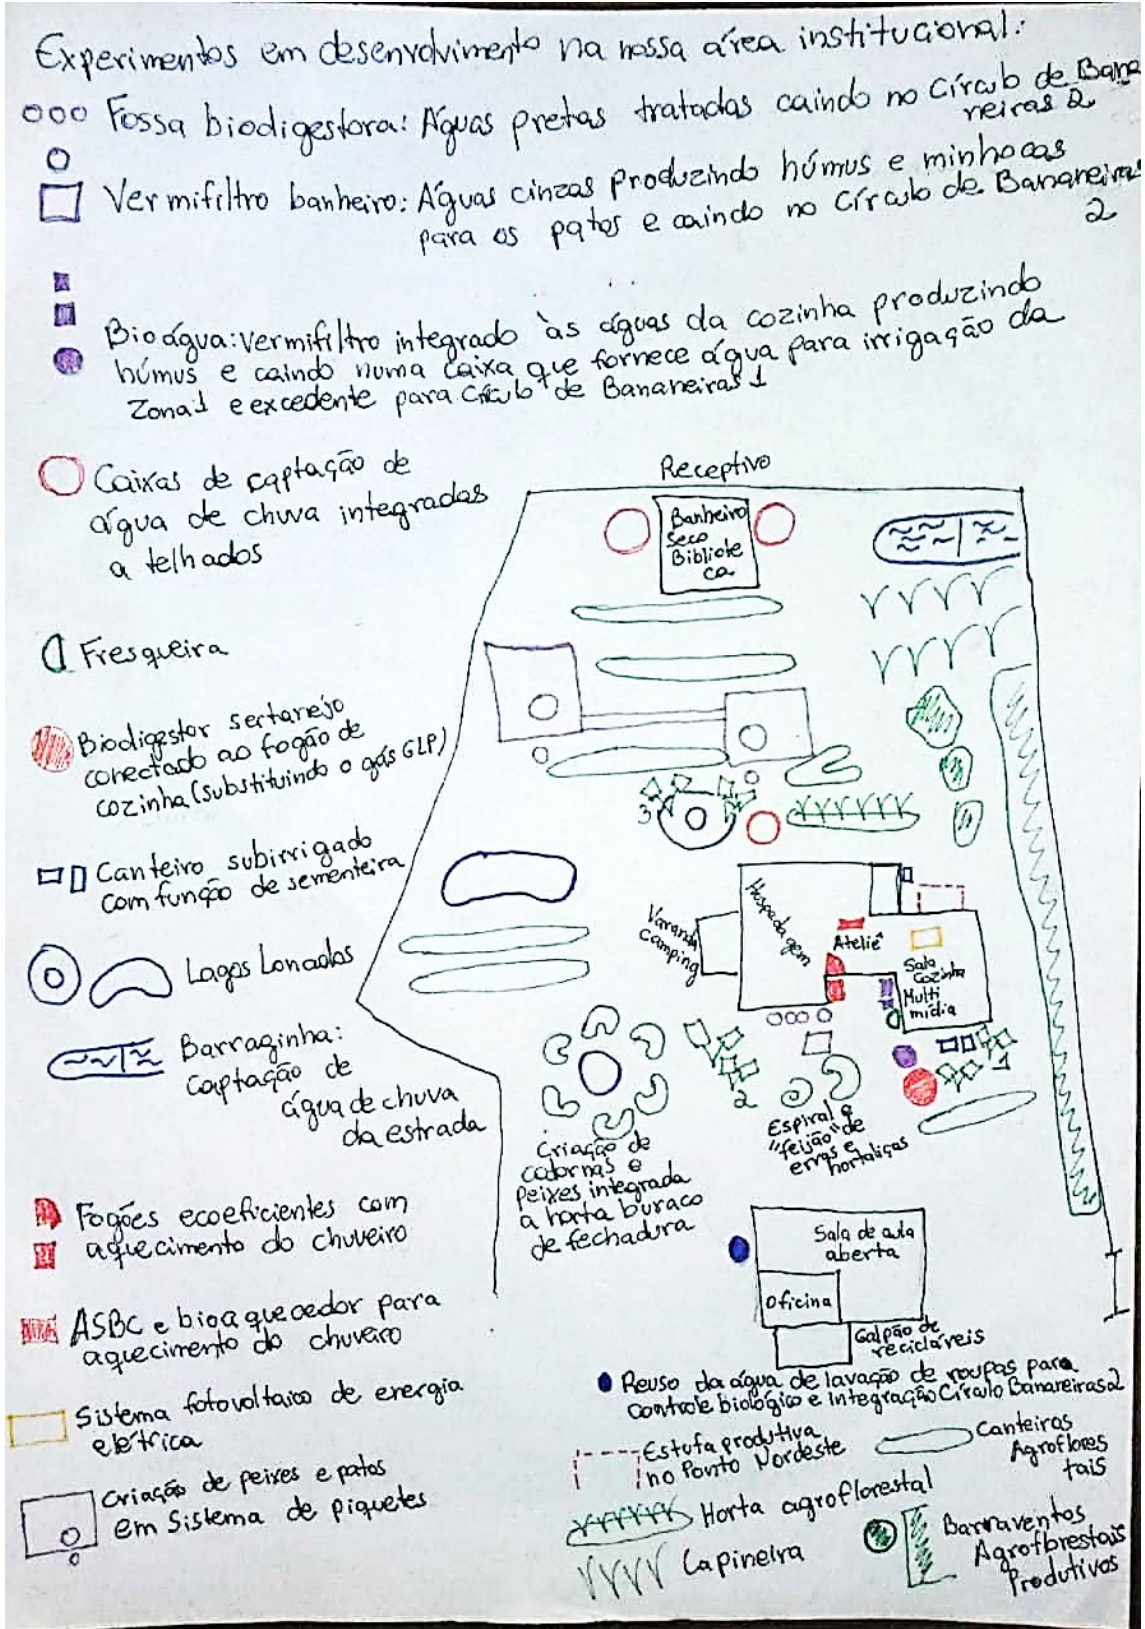 Experimentos em desenvolvimento na nossa área institucional:
Fossa biodigestora: Águas pretas tratadas caindo no Círculo de Bana
neiras 2
Vermifiltro banheiro: Águas cinzas produzindo húmus e minhocas
para os patos e caindo no Círculo de Bananeiras
2
Bioágua: vermifiltro integrado às águas da cozinha produzindo
húmus e caindo numa caixa que fornece água para irrigação da
Zona 1 e excedente para Círculo de Bananeiras 1
Caixas de captação de
água de chuva integradas
a telhados
Fresqueira
Biodigestor sertanejo
conectado ao fogão de
cozinha (substituindo o gás GLP)
Canteiro subirrigado
com função de sementeira
Lagos Lonados
Barraginha:
Captação de
água de chuva
da estrada
Fogões ecoeficientes com
aquecimento do chuveiro
ASBC e bioaquecedor para
aquecimento do chuveiro
Sistema fotovoltaico de energia
elétrica
Criação de peixes e patos
em Sistema de piquetes
Receptivo
Banheiro
Seco
Bibliote
ca
3
Hospedagem
Varanda
Camping
Ateliê
Sala
Cozinha
Multi
mídia
1
2
Espiral e
"feijão" de
ervas e
hortaliças
Criação de
codornas e
peixes integrada
a horta buraco
de fechadura
Sala de aula
aberta
Oficina
Galpão de
recicláveis
Reuso da água de lavação de roupas para
controle biológico e integração Círculo Bananeiras 2
Estufa produtiva
no Ponto Nordeste
Canteiros
Agroflores
tais
Horta agroflorestal
Capineira
Barraventos
Agroflorestais
Produtivos